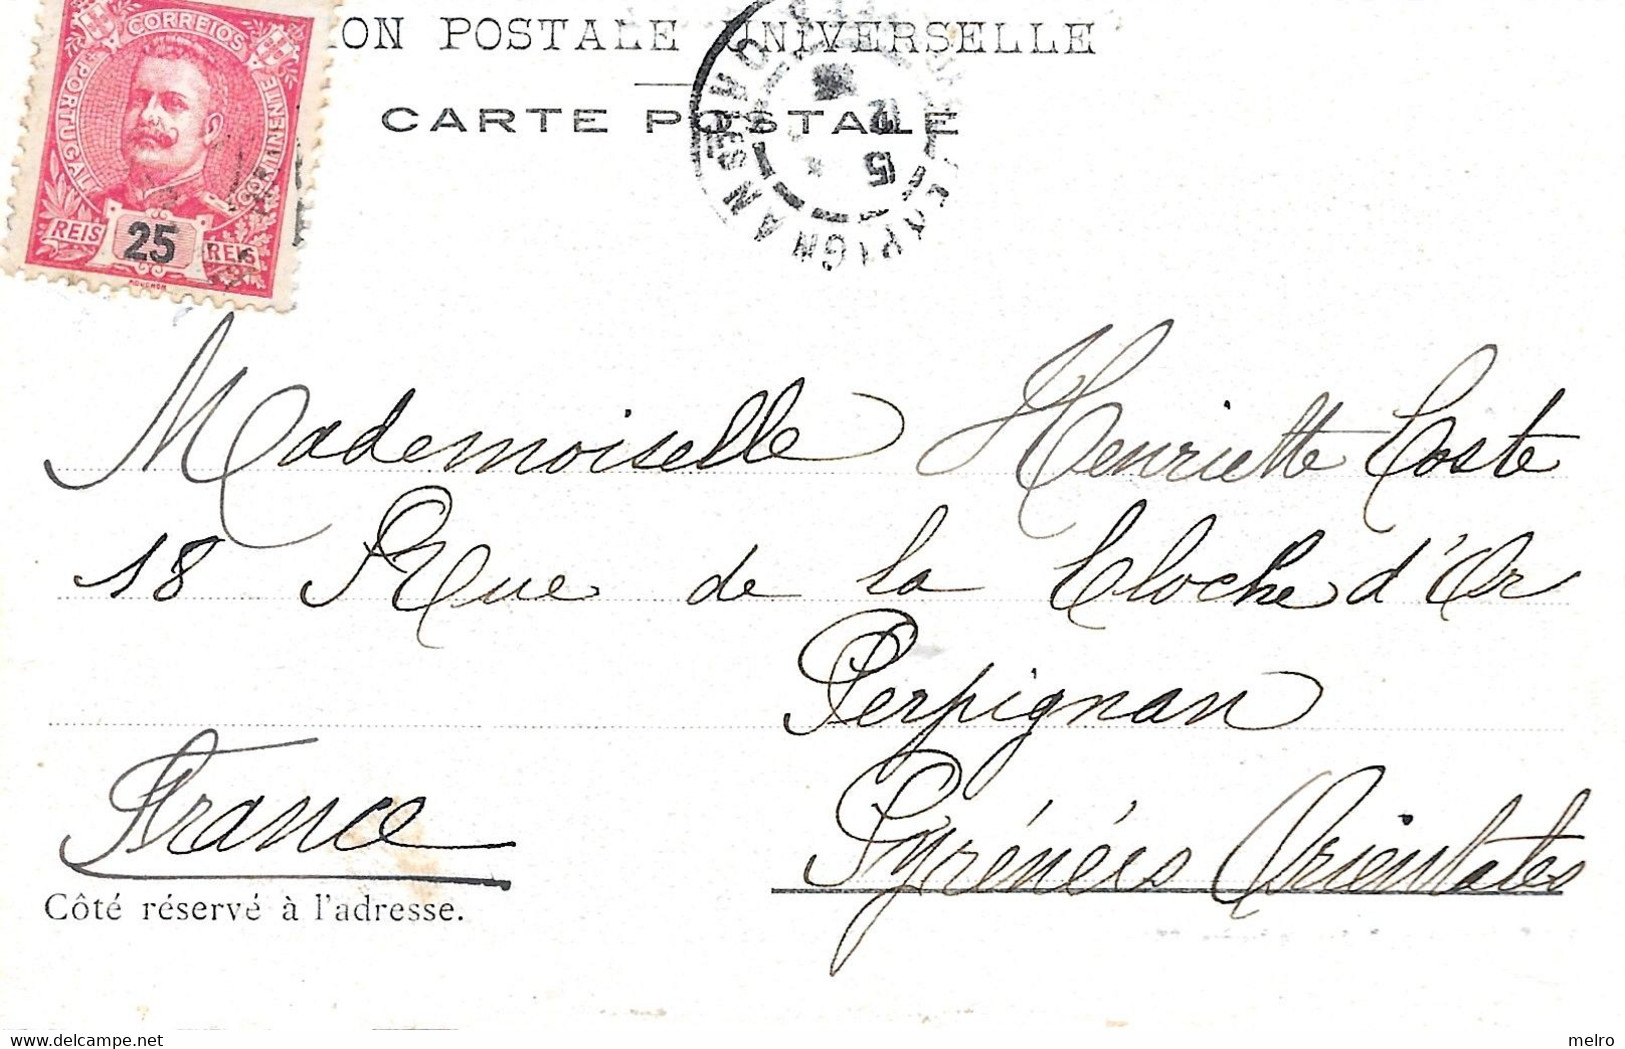 ION POSTALE UNIVERSELLE
CARTE POSTALE
CORREIOS
PORTUGAL
REIS 25 REIS
MOUCHON
PERPIGNAN
15
Mademoiselle Henriette Coste
18 Rue de la Cloche d'Or
Perpignan
France
Pyrénées Orientales
Côté réservé à l'adresse.
www.delcampe.net
melro